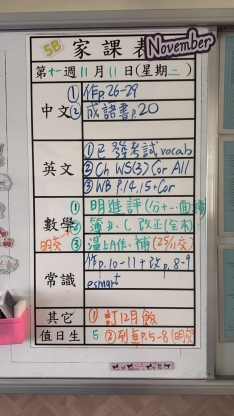 5B 家課表 November
第十一週11月11日(星期二)
中文 ①作p.26-29
②成語書p.20
英文 ①已發考試 vocab
② Ch WS(3) Cor All
③ WB P.14.15+Cor
數學 ① 明進評(分十一、面積)
② 簿B、C 改正(全本)
明交 ③ 漫上A作、補(25/11交)
常識 作p.10-11+改p.8-9
esmart
其它 ① 訂12月飯
值日生 5 ② P.5-8 (明交)